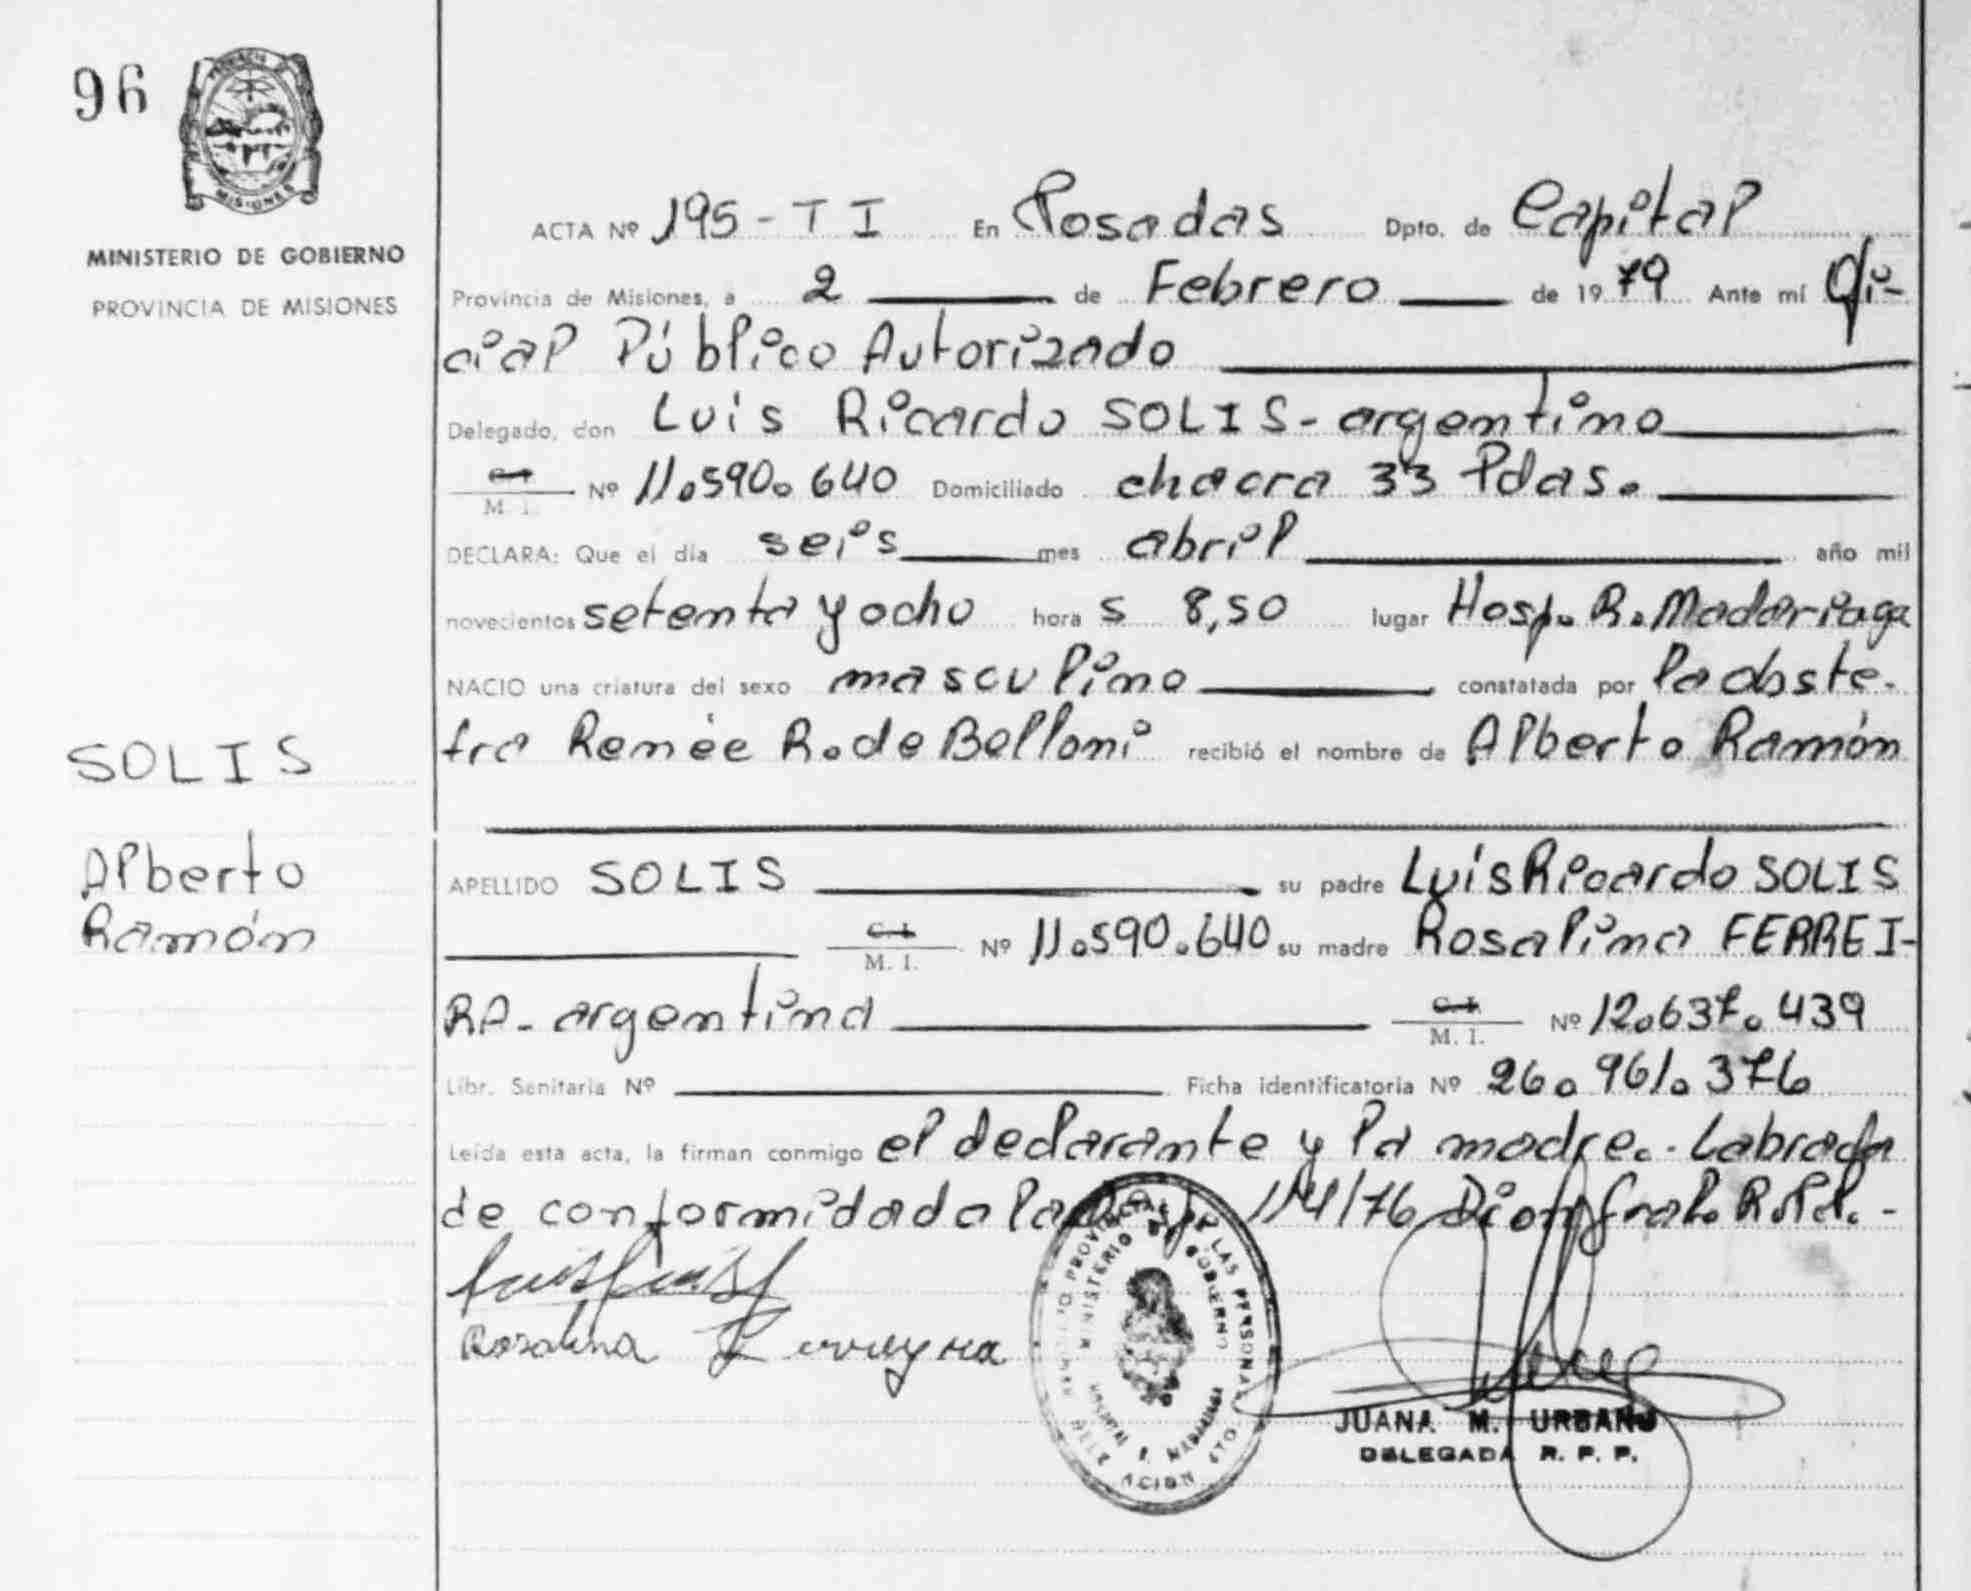 96
MISIONES
MINISTERIO DE GOBIERNO
PROVINCIA DE MISIONES
SOLIS
Alberto
Ramón
ACTA Nº 195-TI En Posadas Dpto. de Capital
Provincia de Misiones, a 2 de Febrero de 1979 Ante mí Ofi-
cial Público Autorizado
Delegado, don Luis Ricardo SOLIS- argentino
C.I. M. I. Nº 11.590.640 Domiciliado chacra 33 Pdas.
DECLARA: Que el día seis mes abril año mil
novecientos setenta y ocho hora s 8,50 lugar Hosp. R. Madariaga
NACIO una criatura del sexo masculino constatada por la obste-
tra Renée R. de Belloni recibió el nombre de Alberto Ramón
APELLIDO SOLIS su padre Luis Ricardo SOLIS
C.I. M. I. Nº 11.590.640 su madre Rosalina FERREI-
RA- argentina C.I. M. I. Nº 12.637.439
Libr. Sanitaria Nº Ficha identificatoria Nº 26.961.376
Leída esta acta, la firman conmigo el declarante y la madre.- Labrada
de conformidad a la 1/4/76 R.P.P.-
Rosalina Ferreyra
PROVINCIAL DE LAS PERSONAS
MINISTERIO DE GOBIERNO
DELEGACION
JUANA M. URBANO
DELEGADA R. P. P.